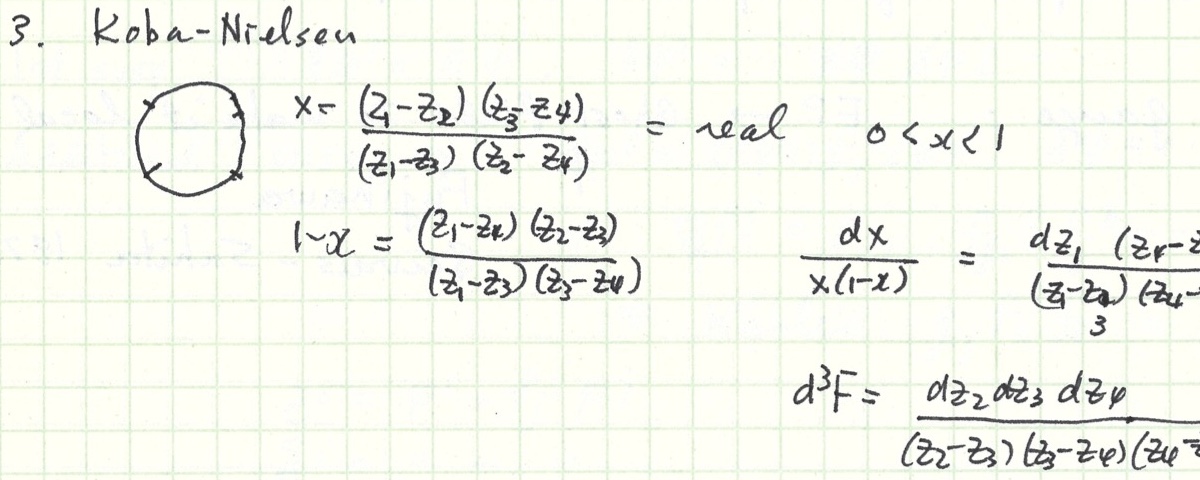 3. Koba-Nielsen
x = (z₁-z₂)(z₃-z₄) / (z₁-z₃)(z₂-z₄) = real 0 < x < 1
1-x = (z₁-z₄)(z₂-z₃) / (z₁-z₃)(z₃-z₄) dx / x(1-x) = dz₁ (z₄-z / (z₁-z₃) (z₄-
d³F = dz₂ dz₃ dz₄ / (z₂-z₃)(z₃-z₄)(z₄-z